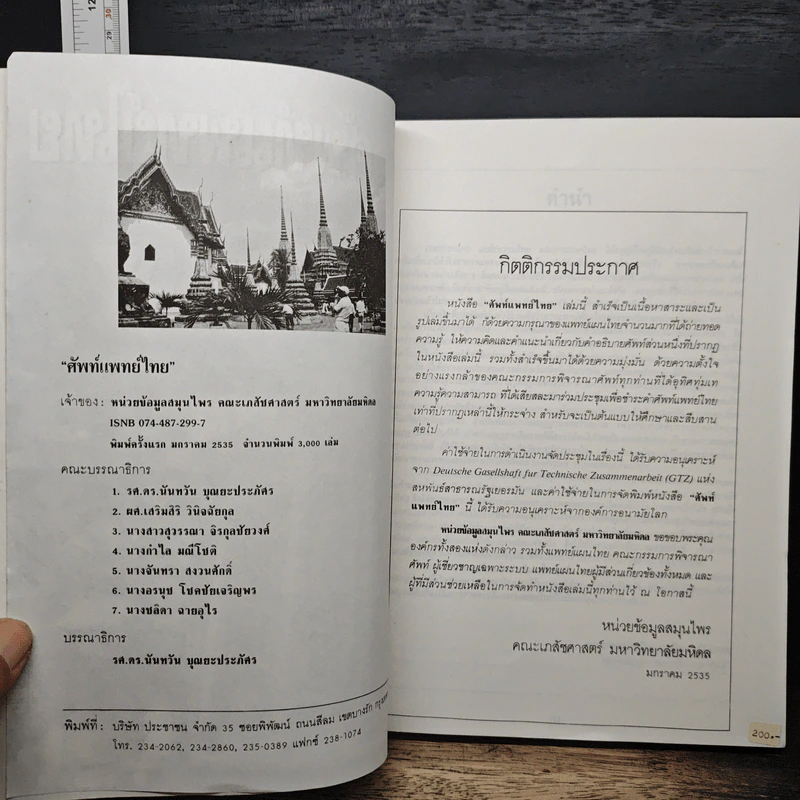 "ศัพท์แพทย์ไทย"
เจ้าของ : หน่วยข้อมูลสมุนไพร คณะเภสัชศาสตร์ มหาวิทยาลัยมหิดล
ISNB 074-487-299-7
พิมพ์ครั้งแรก มกราคม 2535 จำนวนพิมพ์ 3,000 เล่ม
คณะบรรณาธิการ
1. รศ.ดร.นันทวัน บุณยะประภัศร
2. ผศ.เสริมสิริ วินิจฉัยกุล
3. นางสาวสุวรรณา จิรกุลชัยวงศ์
4. นางกำไล มณีโชติ
5. นางจันทรา สงวนศักดิ์
6. นางอรนุช โชคชัยเจริญพร
7. นางชลิดา ฉายอุไร
บรรณาธิการ
รศ.ดร.นันทวัน บุณยะประภัศร
พิมพ์ที่ : บริษัท ประชาชน จำกัด 35 ซอยพิพัฒน์ ถนนสีลม เขตบางรัก
โทร. 234-2062, 234-2860, 235-0389 แฟกซ์ 238-1074
กิตติกรรมประกาศ
หนังสือ "ศัพท์แพทย์ไทย" เล่มนี้ สำเร็จเป็นเนื้อหาสาระและเป็น
รูปเล่มขึ้นมาได้ ก็ด้วยความกรุณาของแพทย์แผนไทยจำนวนมากที่ได้ถ่ายทอด
ความรู้ ให้ความคิดและคำแนะนำเกี่ยวกับคำอธิบายศัพท์ส่วนหนึ่งที่ปรากฏ
ในหนังสือเล่มนี้ รวมทั้งสำเร็จขึ้นมาได้ด้วยความมุ่งมั่น ด้วยความตั้งใจ
อย่างแรงกล้าของคณะกรรมการพิจารณาศัพท์ทุกท่านที่ได้อุทิศทุ่มเท
ความรู้ความสามารถ ที่ได้เสียสละมาร่วมประชุมเพื่อชำระคำศัพท์แพทย์ไทย
เท่าที่ปรากฏเหล่านี้ให้กระจ่าง สำหรับจะเป็นต้นแบบให้ศึกษาและสืบสาน
ต่อไป
ค่าใช้จ่ายในการดำเนินงานจัดประชุมในเรื่องนี้ ได้รับความอนุเคราะห์
จาก Deutsche Gasellshaft fur Technische Zusammenarbeit (GTZ) แห่ง
สหพันธ์สาธารณรัฐเยอรมัน และค่าใช้จ่ายในการจัดพิมพ์หนังสือ "ศัพท์
แพทย์ไทย" นี้ ได้รับความอนุเคราะห์จากองค์การอนามัยโลก
หน่วยข้อมูลสมุนไพร คณะเภสัชศาสตร์ มหาวิทยาลัยมหิดล ขอขอบพระคุณ
องค์กรทั้งสองแห่งดังกล่าว รวมทั้งแพทย์แผนไทย คณะกรรมการพิจารณา
ศัพท์ ผู้เชี่ยวชาญเฉพาะระบบ แพทย์แผนไทยผู้มีส่วนเกี่ยวข้องทั้งหมด และ
ผู้ที่มีส่วนช่วยเหลือในการจัดทำหนังสือเล่มนี้ทุกท่านไว้ ณ โอกาสนี้
หน่วยข้อมูลสมุนไพร
คณะเภสัชศาสตร์ มหาวิทยาลัยมหิดล
มกราคม 2535
200.-